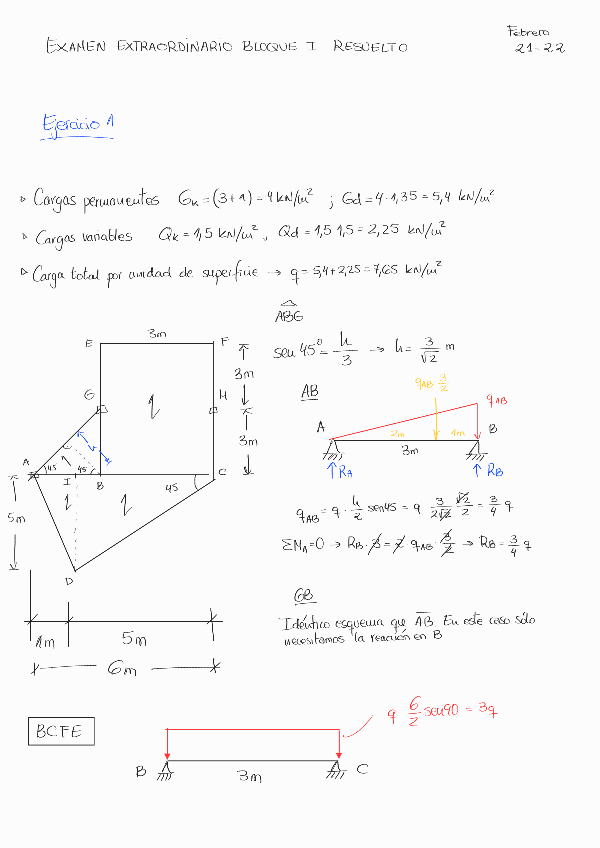 EXAMEN EXTRAORDINARIO BLOQUE I RESUELTO
Febrero
21-22
Ejercicio 1
▹ Cargas permanentes Gk = (3+1) = 4 kN/m² ; Gd = 4·1,35 = 5,4 kN/m²
▹ Cargas variables Qk = 1,5 kN/m², Qd = 1,5·1,5 = 2,25 kN/m²
▹ Carga total por unidad de superficie → q = 5,4+2,25 = 7,65 kN/m²
ABG
sen 45° = h/3 → h = 3/√2 m
3m
E
F
3m
G
H
q
3m
A
45
45
I
B
C
45
q
q
5m
D
1m
5m
6m
AB
qAB·3/2
qAB
A
B
2m
1m
3m
RA
RB
qAB = q · h/2 sen45 = q 3/2√2 √2/2 = 3/4 q
ΣMA=0 → RB·3 = 2 qAB·3/2 → RB = 3/4 q
GB
Idéntico esquema que AB. En este caso sólo
necesitamos la reacción en B
BCFE
q 6/2 sen90 = 3q
B
3m
C